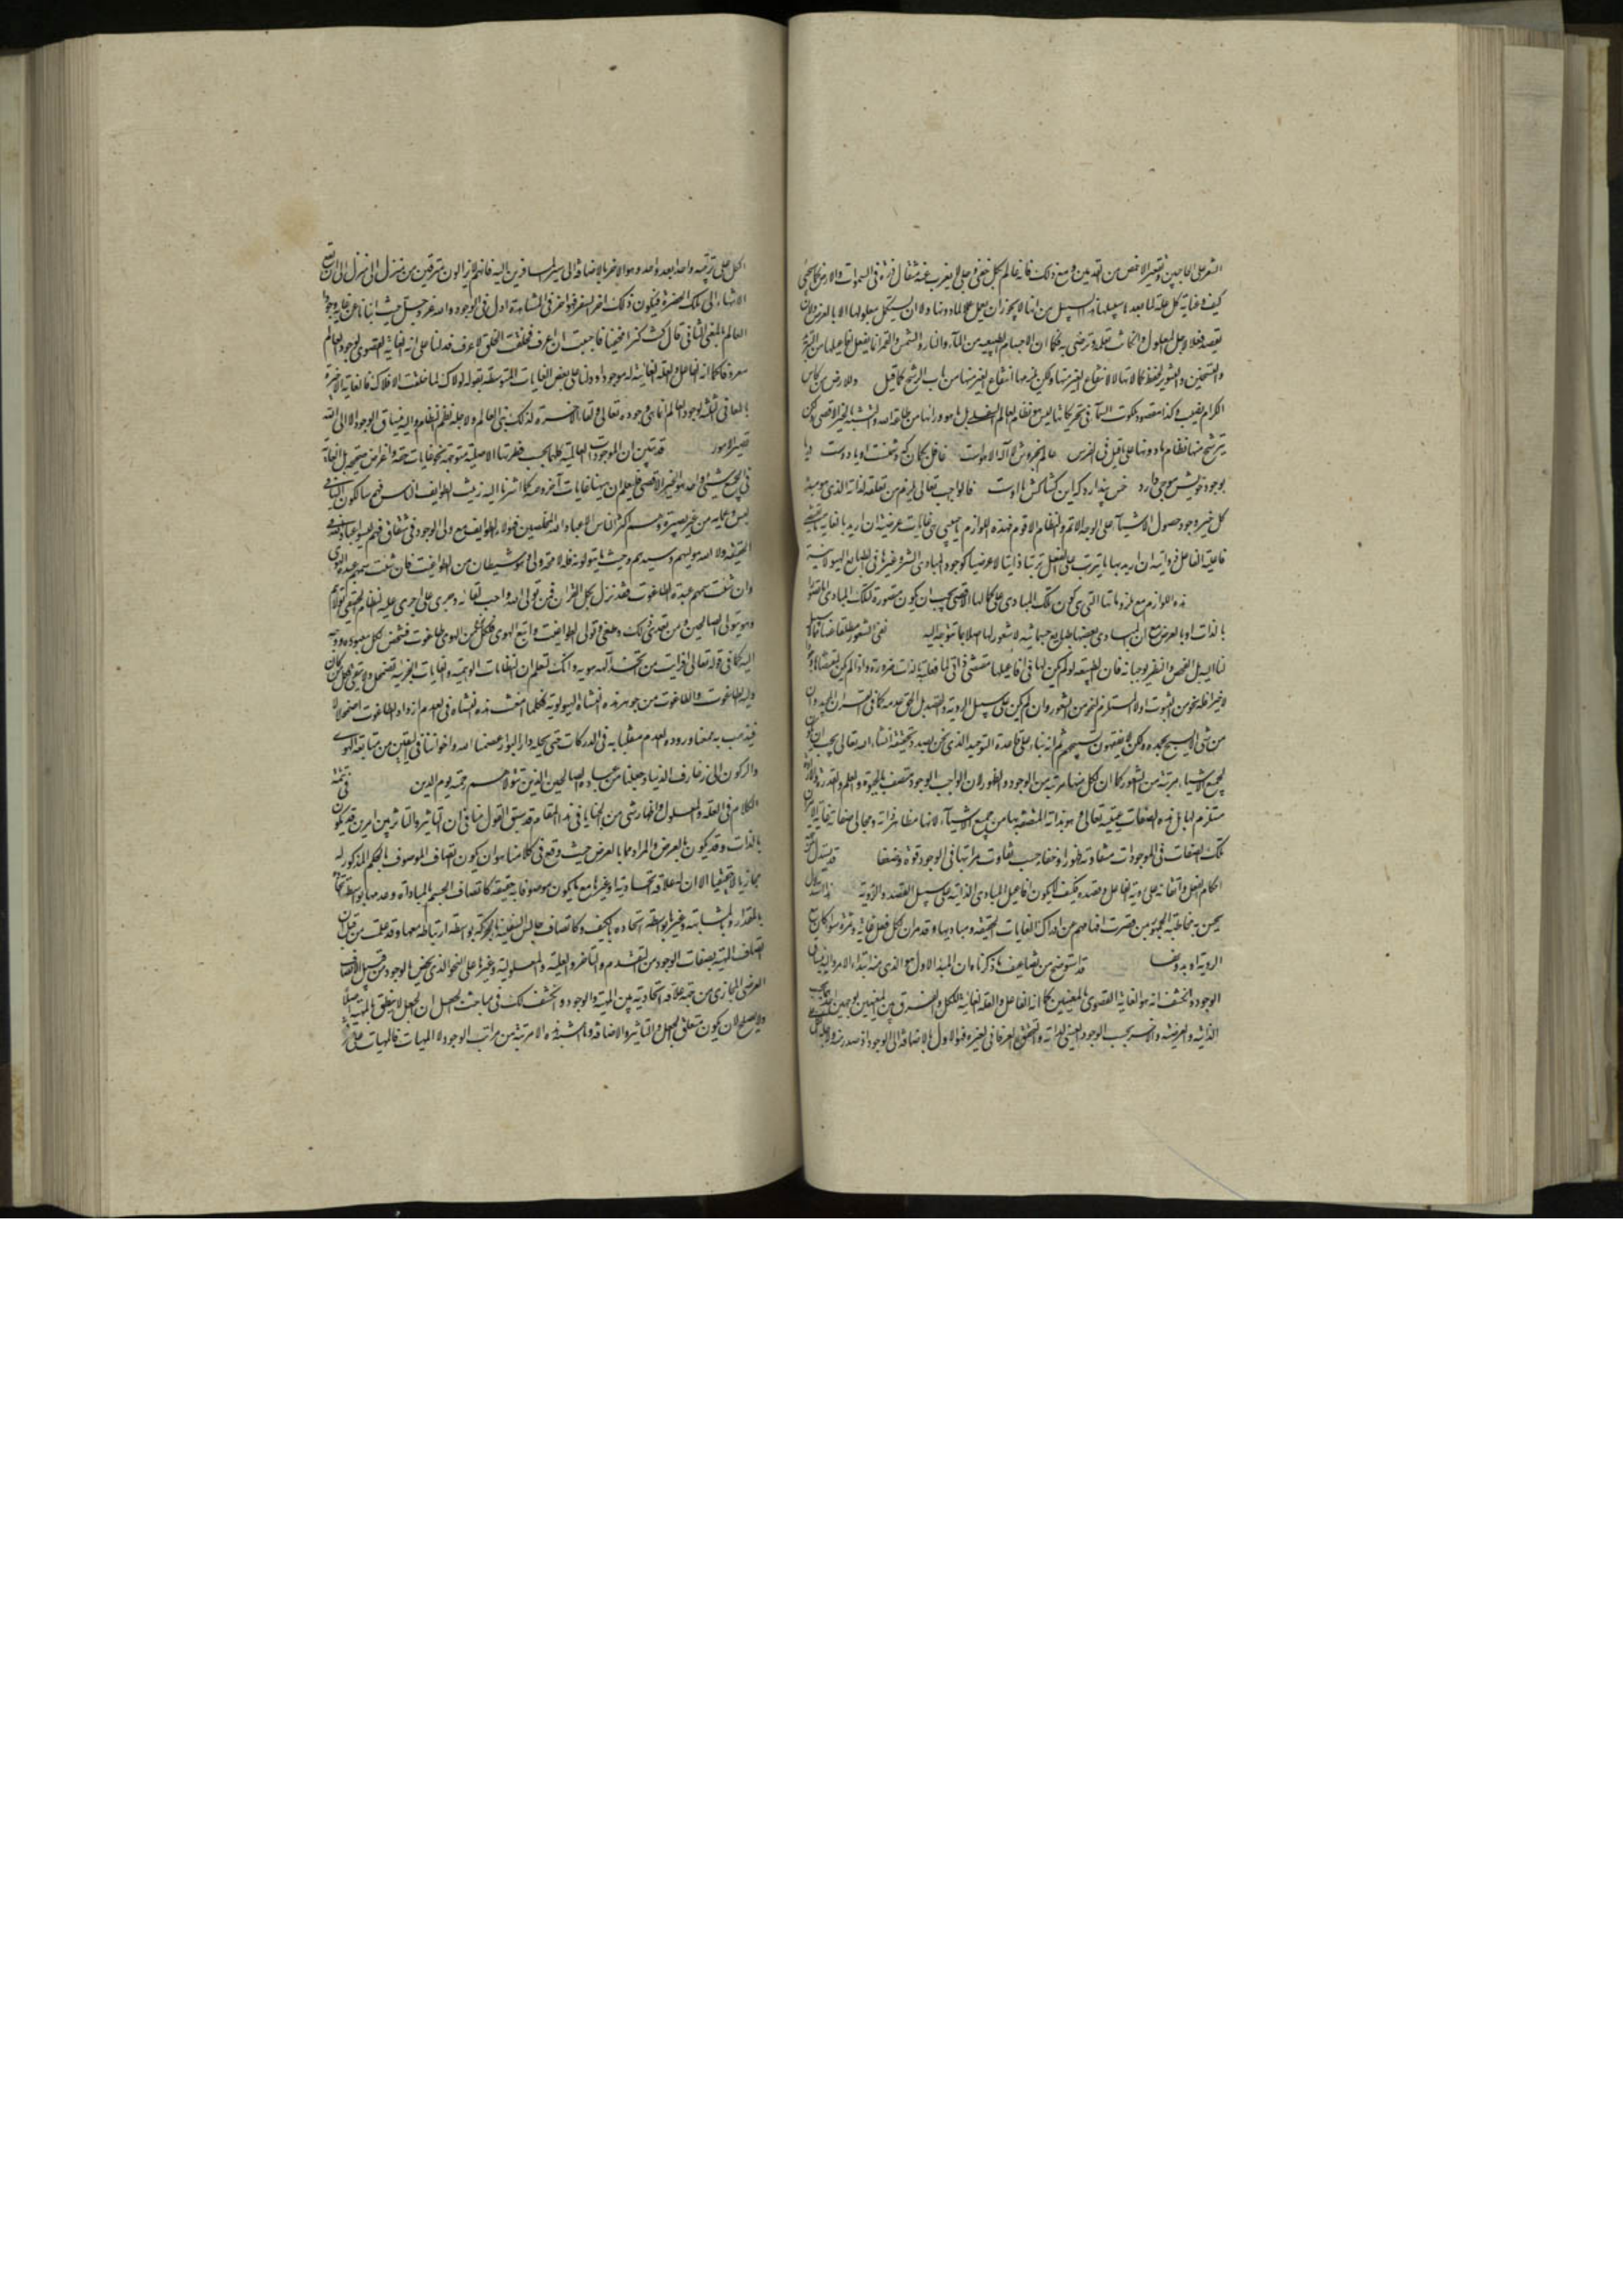 الشعر على الحاجبين وتقعير الاخمص من القدمين ومع ذلك فانه عالم بكل خفي وجلي لا يعزب عنه مثقال ذرة في السموات والارض كما يجيء
كيف وغاية كل علة لما بعده سبيلها هذا السبيل من انها لا يجوز ان يعمل عملا لما دونها ولا ان يستكمل بمعلولها الا بالعرض ولا ان
يقصد فعلا لاجل المعلول وان كانت تعلمه وترضى به فكما ان الاجسام الطبيعية من الماء والنار والشمس والقمر انما يفعل افاعيلها من التبريد
والتسخين والتنوير لحفظ كمالاتها لا لانتفاع الغير منها ولكن يلزمها انتفاع الغير منها من باب الرشح كما قيل وللارض من كاس
الكرام نصيب وكذا مقصود ملكوت السماء في تحريكاتها ليس هو نظام العالم السفلي بل ما هو وراءها من طاعة الله والتشبه بالخير الاقصى ولكن
يترشح منها نظام ما دونها على ما قيل في الفرس عالم بخروش لا اله الا هو است غافل بكمان كه دشمنست او يا دوست دريا
بوجود خويش موجي دارد خس پندارد كه اين كشاكش با اوست فالواجب تعالى يلزم من تعقله لذاته الذي هو مبدأ
كل خير وجود حصول الاشياء على الوجه الاتم والنظام الاقوم فهذه اللوازم يا حبيبي هي غايات عرضية ان اريد بالغاية ما يقتضي
فاعلية الفاعل وذاتية ان اريد بها ما يترتب على الفعل ترتبا ذاتيا لا عرضيا كوجود مبادي الشر وغيرها في الطبايع الهيولانية
هذه اللوازم مع ملزوماتها التي هي كون تلك المبادي على كمالها الاقصى يجب ان يكون متصورة لتلك المبادي اما تصورا
بالذات او بالعرض مع ان المبادي بعضها طبايع جسمانية لا شعور لها اصلا بما توجهت اليه نفي الشعور مطلقا مما لا سبيل
لنا اليه بل الفحص والنظر يوجبانه فان الطبيعة لو لم يكن لها في افاعيلها مقتضى ذاتي لما فعلته بالذات ضرورة واذ لم يكن لمقتضاها وجود
الا اخيرا فله نحو من الثبوت اولا المستلزم لنحو من الشعور وان لم يكن على سبيل الروية والقصد بل الحق عدمه كما في القران المجيد وان
من شيء الا يسبح بحمده ولكن لا تفقهون تسبيحهم ثم انه بناء على قاعدة التوحيد الذي نحن بصدد تحقيقه انشاء الله تعالى يجب ان يكون
لجميع الاشياء مرتبة من الشعور كما ان لكل منها مرتبة من الوجود والظهور لان الواجب الوجود متصف بالحيوة والعلم والقدرة والارادة
مستلزم لها بل هذه الصفات عينه تعالى وهو بذاته المتصفة بها مع جميع الاشياء لانها مظاهر ذاته ومجالي صفاته غاية الامر ان
تلك الصفات في الموجودات متفاوتة ظهورا وخفاء حسب تفاوت مراتبها في الوجود قوة وضعفا قد يستدل من جهة
احكام الفعل واتقانه على روية الفاعل وقصده فكيف لا يكون افاعيل المبادي الذاتية على سبيل القصد والروية هذا استدلال
يحسن به مخاطبة الجمهور ممن قصرت افهامهم عن ادراك الغايات الحقيقية ومباديها وقد مر ان لكل فعل غاية وثمرة سواء كان مع
الروية او بدونها قد استوضح من تضاعيف ما ذكرناه ان المبدأ الاول هو الذي منه ابتداء الامر واليه ينساق
الوجود وانكشف انه هو الغاية القصوى بالمعنيين كما انه الفاعل والعلة الغائية للكل والفرق بين المعنيين بوجهين احدهما بحسب
الذاتية والعرضية والاخر بحسب الوجود العيني لذاته والتحقق العرفاني لغيره فهو الاول بالاضافة الى الوجود اذ صدر منه ولاجله
الكل على ترتيبه واحدا بعد واحد وهو الاخر بالاضافة الى سير المسافرين اليه فانهم لا يزالون مترقين من منزل الى منزل الى ان يقع
الانتهاء الى تلك الحضرة فيكون ذلك اخر السفر فهو اخر في المشاهدة اول في الوجود والله عز وجل حيث انبأنا عن غاية وجود
العالم بالمعنى الثاني قال كنت كنزا مخفيا فاحببت ان اعرف فخلقت الخلق لاعرف فدلنا على انه الغاية القصوى لوجود العالم
معروفا كما انه الفاعل والعلة الغائية له موجودا ودلنا على بعض الغايات المتوسطة بقوله لولاك لما خلقت الافلاك فالغاية الاخيرة
بالمعاني الثلثة لوجود العالم انما هي وجوده تعالى ولقاء الاخرة لذلك بنى العالم ولاجله نظم النظام واليه ينساق الوجود الا الى الله
تصير الامور قد تبين ان الموجودات العالمية كلها بحسب فطرتها الاصلية متوجهة نحو غايات حقة واغراض صحيحة بل الغاية
في الجميع شيء واحد هو الخير الاقصى فليعلم ان ههنا غايات اخر وهمية كما اشرنا اليه زينت لطوايف من الناس فهم سالكون اليها في
لبس وعماية من غير بصيرة وهم اكثر الناس الا عباد الله المخلصين فهؤلاء الطوايف مع ولي الوجود في شقاق فهم ليسوا عباد الله في
الحقيقة ولا الله موليهم وسيدهم وحيث ما يتولونه فله لا محالة ولي وهو شيطان من الطواغيت فان شئت سمهم عبدة الهوى
وان شئت سمهم عبدة الطاغوت فقد نزل بكل القران فمن تولى الله واحب لقاءه وجرى على ما جرى عليه النظام الحقيقي تولاهم
وهو يتولى الصالحين ومن تعدى ذلك وطغى وتولى الطواغيت واتبع الهوى فلكل نوع من الهوى طاغوت فشخص لكل معبوده ووجه
اليه كما في قوله تعالى افرأيت من اتخذ الهه هويه وانك لتعلم ان النظامات الوهمية والغايات الجزئية تضمحل ولا يبقى فكل من كان
وليه الطاغوت والطاغوت من جوهر هذه النشأة الهيولوية فكلما امعنت هذه النشأة في العدم ازداد الطاغوت اضمحلالا
فيذهب به ممعنا وروده العدم منقلبا به في الدركات حتى يحله دار البوار عصمنا الله واخواننا في اليقين من متابعة الهوى
والركون الى زخارف الدنيا وجعلنا من عباده الصالحين الذين يتولاهم رحمة يوم الدين في تتمة
الكلام في العلة والمعلول واظهار شيء من الخبايا في هذا المقام قد سبق القول منا في ان التاثير والتاثر بين امرين قد يكون
بالذات وقد يكون بالعرض والمراد مما بالعرض حيث وقع في كلامنا هو ان يكون اتصاف الموصوف بالحكم المذكور له
مجازيا لا حقيقيا الا ان له علاقة اتحادية او غيرها مع ما يكون موصوفا به حقيقة كاتصاف الجسم بالمساواة وعدمها بواسطة اتحاده
بالمقدار وبالمشابهة وغيرها بواسطة اتحاده بالكيف وكاتصاف جالس السفينة بالحركة بواسطة ارتباطه معها وقد علمت من قبل ان
اتصاف المهية بصفات الوجود من التقدم والتاخر والعلية والمعلولية وغيرها على النحو الذي يختص بالوجود من قبيل الاتصاف
العرضي المجازي من جهة علاقة اتحادية بين المهية والوجود وانكشف لك في مباحث الجعل ان الجعل لا يتعلق بالمهية اصلا
ولا يصلح لان يكون متعلق الجعل والتاثير والاضافة وما اشبه هذه الا مرتبة من مراتب الوجود لا المهيات فالمهيات على